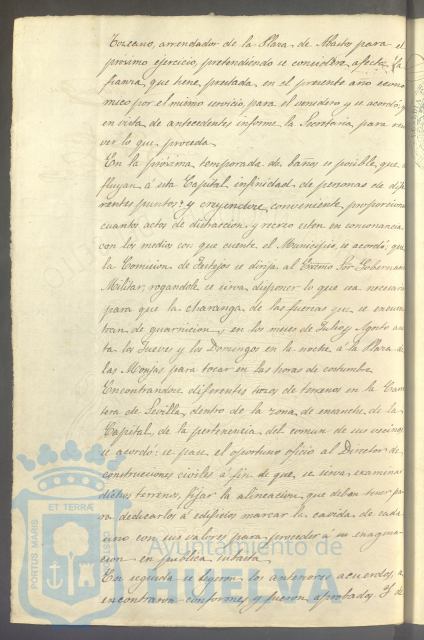 Tozcano, arrendador de la Plaza de Abastos para el
próximo ejercicio, pretendiendo se considere afecta la
fianza que tiene prestada en el presente año econo
mico por el mismo servicio para el venidero y se acordó q
en vista de antecedentes informe la Secretaria para re
ver lo que proceda
En la próxima temporada de baños es posible que
fluyan á esta Capital infinidad de personas de dife
rentes puntos y creyendose conveniente proporciona
cuantos actos de distraccion y recreo esten en consonancia
con los medios con que cuente el Municipio, se acordó, que
la Comision de Festejos se dirija al Excmo Sor Gobernan
Militar, rogandole se sirva disponer lo que sea necesario
para que la charanga de las fuerzas que se encuen
tran de guarnicion, en los meses de Julio y Agosto au
ta los Jueves y los Domingos en la noche á la Plaza de
las Monjas para tocar en las horas de costumbre
Encontrandose diferentes trozos de terrenos en la Carre
tera de Sevilla, dentro de la zona de ensanche de la
Capital, de la pertenencia del comun de sus vecinos
se acordó: se pase el oportuno oficio al Director de
construcciones civiles á fin de que se sirva examina
dichos terrenos, fijar la alineacion que deban tener pa
ra dedicarlos á edificios marcar la cavida de cada
uno con sus valores para proceder á su enagena
cion en publica subasta
En seguida se leyeron los anteriores acuerdos, se
encontraron conformes y fueron aprobados. Y de
PORTUS MARIS ET TERRAE
Ayuntamiento de
HUELVA